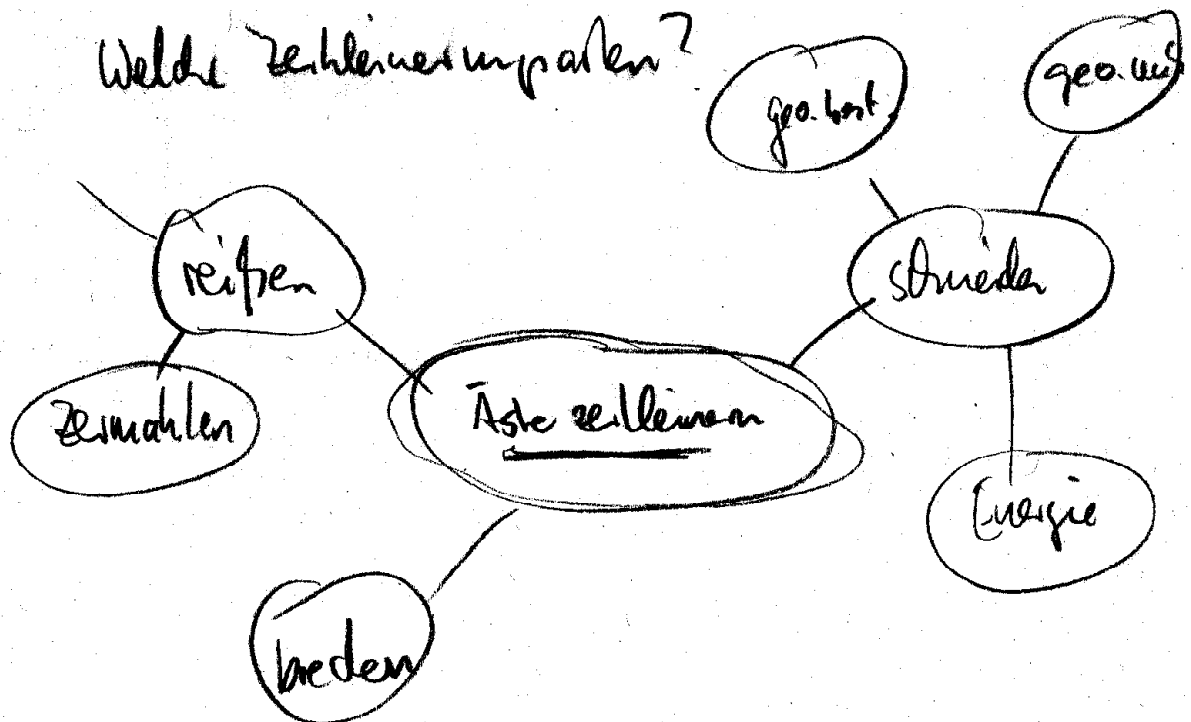 Welche Zerkleinerungsarten?
geo. best.
reißen
schneiden
zermahlen
Äste zerkleinern
Energie
brechen